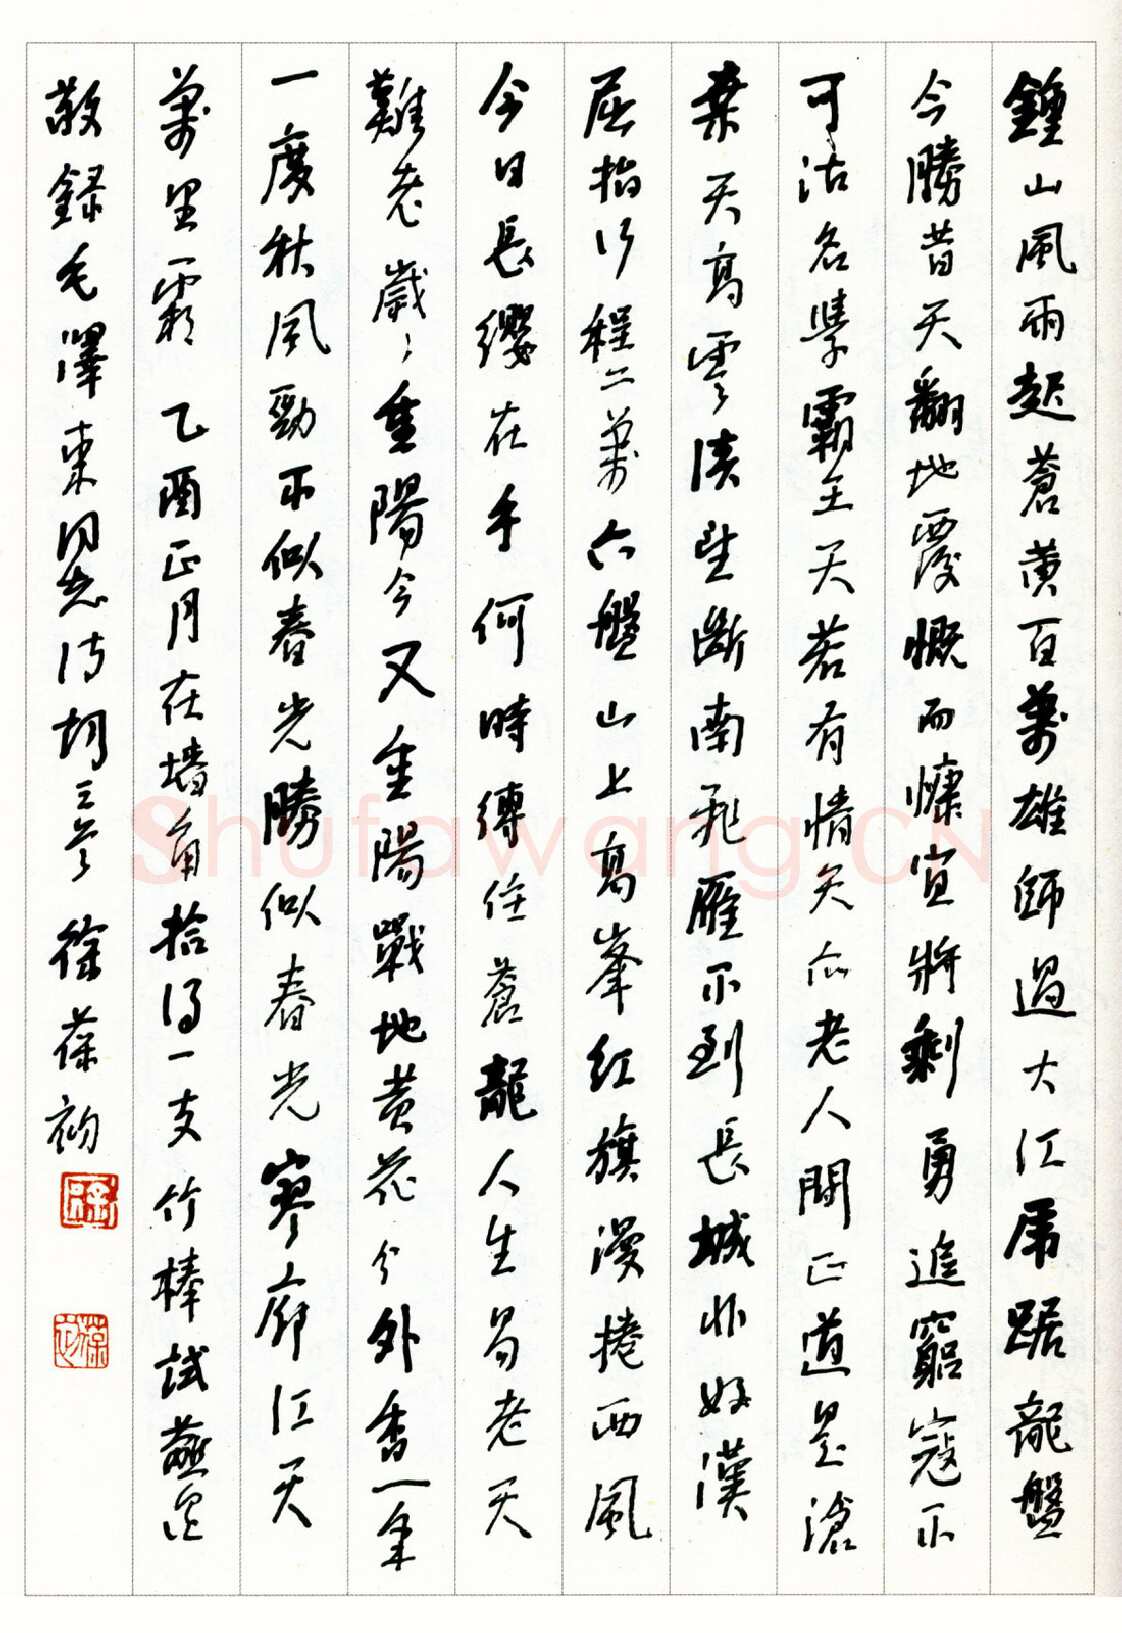 鍾山風雨起蒼黄百萬雄師過大江虎踞龍盤
今勝昔天翻地覆慨而慷宜將剩勇追窮寇不
可沽名學霸王天若有情天亦老人間正道是滄
桑天高雲淡望斷南飛雁不到長城非好漢
屈指行程二萬六盤山上高峯红旗漫捲西風
今日長纓在手何時縛住蒼龍人生易老天
難老歲〻重陽今又重陽戰地黄花分外香一年
一度秋風勁不似春光勝似春光寥廓江天
萬里霜 乙酉正月在墙角拾得一支竹棒試蘸
敬録毛澤東同志诗詞三首 徐葆
Shufawang.CN